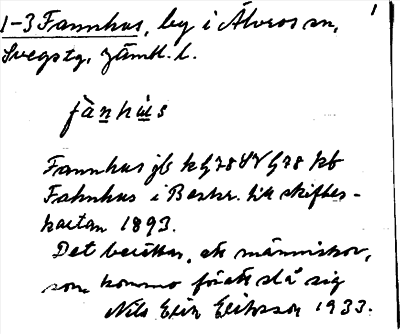 1-3 Fannhus, by i Älvros sn, 1
Svegs tg, Jämtl. l.
fànhùs
Fannhus jb kG78 VG78 kb
Fahnhus i Beskr. till skiftes-
kartan 1893.
Det berättas, att människor,
som kommo för att slå sig
Nils Erik Eriksson 1933.